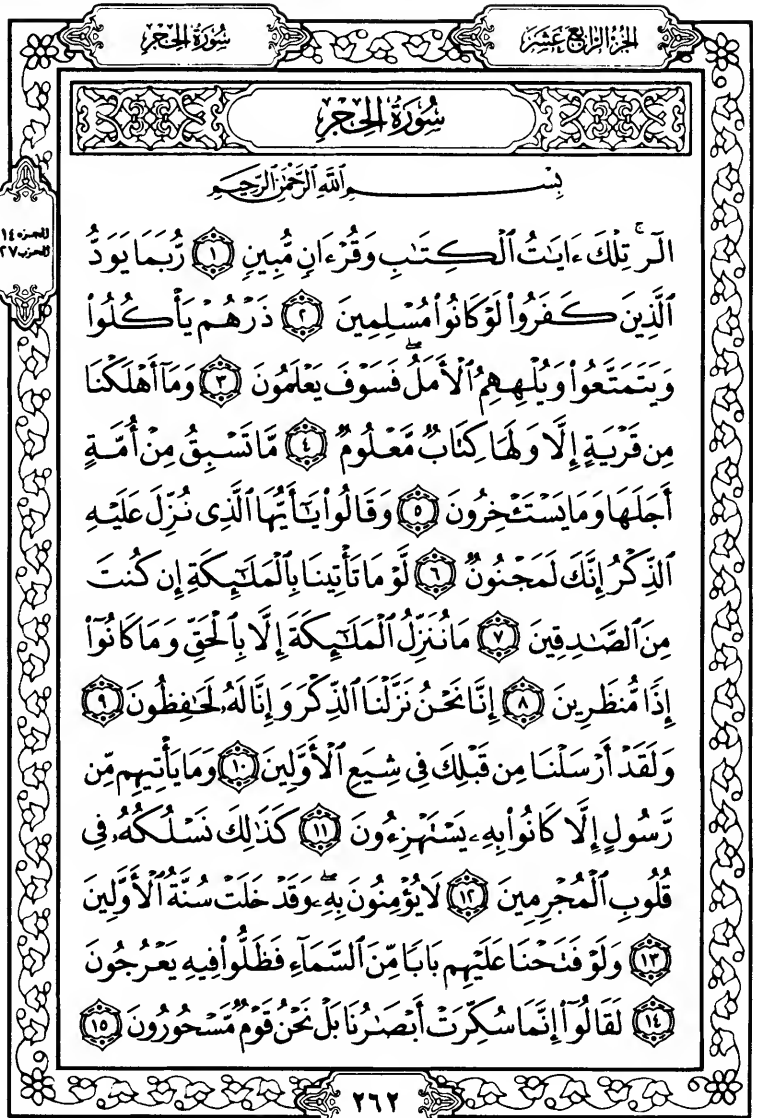 الجزء الرابع عشر
سُورَةُ الحِجْر
سُورَةُ الحِجْرِ
الجزء ١٤
الحزب ٢٧
بِسْمِ ٱللَّهِ ٱلرَّحْمَٰنِ ٱلرَّحِيمِ
الٓر ۚ تِلْكَ ءَايَٰتُ ٱلْكِتَٰبِ وَقُرْءَانٍ مُّبِينٍ ١ رُّبَمَا يَوَدُّ
ٱلَّذِينَ كَفَرُوا۟ لَوْ كَانُوا۟ مُسْلِمِينَ ٢ ذَرْهُمْ يَأْكُلُوا۟
وَيَتَمَتَّعُوا۟ وَيُلْهِهِمُ ٱلْأَمَلُ ۖ فَسَوْفَ يَعْلَمُونَ ٣ وَمَآ أَهْلَكْنَا
مِن قَرْيَةٍ إِلَّا وَلَهَا كِتَابٌ مَّعْلُومٌ ٤ مَّا تَسْبِقُ مِنْ أُمَّةٍ
أَجَلَهَا وَمَا يَسْتَـْٔخِرُونَ ٥ وَقَالُوا۟ يَٰٓأَيُّهَا ٱلَّذِى نُزِّلَ عَلَيْهِ
ٱلذِّكْرُ إِنَّكَ لَمَجْنُونٌ ٦ لَّوْ مَا تَأْتِينَا بِٱلْمَلَٰٓئِكَةِ إِن كُنتَ
مِنَ ٱلصَّٰدِقِينَ ٧ مَا نُنَزِّلُ ٱلْمَلَٰٓئِكَةَ إِلَّا بِٱلْحَقِّ وَمَا كَانُوٓا۟
إِذًا مُّنظَرِينَ ٨ إِنَّا نَحْنُ نَزَّلْنَا ٱلذِّكْرَ وَإِنَّا لَهُۥ لَحَٰفِظُونَ ٩
وَلَقَدْ أَرْسَلْنَا مِن قَبْلِكَ فِى شِيَعِ ٱلْأَوَّلِينَ ١٠ وَمَا يَأْتِيهِم مِّن
رَّسُولٍ إِلَّا كَانُوا۟ بِهِۦ يَسْتَهْزِءُونَ ١١ كَذَٰلِكَ نَسْلُكُهُۥ فِى
قُلُوبِ ٱلْمُجْرِمِينَ ١٢ لَا يُؤْمِنُونَ بِهِۦ ۖ وَقَدْ خَلَتْ سُنَّةُ ٱلْأَوَّلِينَ
١٣ وَلَوْ فَتَحْنَا عَلَيْهِم بَابًا مِّنَ ٱلسَّمَآءِ فَظَلُّوا۟ فِيهِ يَعْرُجُونَ
١٤ لَقَالُوٓا۟ إِنَّمَا سُكِّرَتْ أَبْصَٰرُنَا بَلْ نَحْنُ قَوْمٌ مَّسْحُورُونَ ١٥
٢٦٢